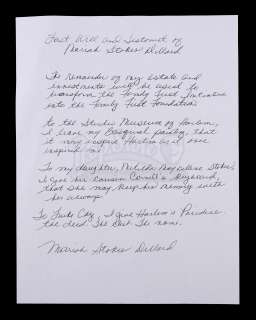 Last Will and Testament of
Mariah Stokes Dillard
The Remainder of my estate and
investments will be used to
transform the Family First Initiative
into the Family First Foundation.
To the Studio Museum of Harlem,
I leave my Basquiat painting, that
it may inspire Harlem as it once
inspired me.
To my daughter, Matilda Maybelline Stokes,
I give her cousin Cornell's keyboard,
that she may keep his memory with
her always.
To Luke Cage, I give Harlem's Paradise.
The deed. The Debt. The name.
Mariah Stokes Dillard